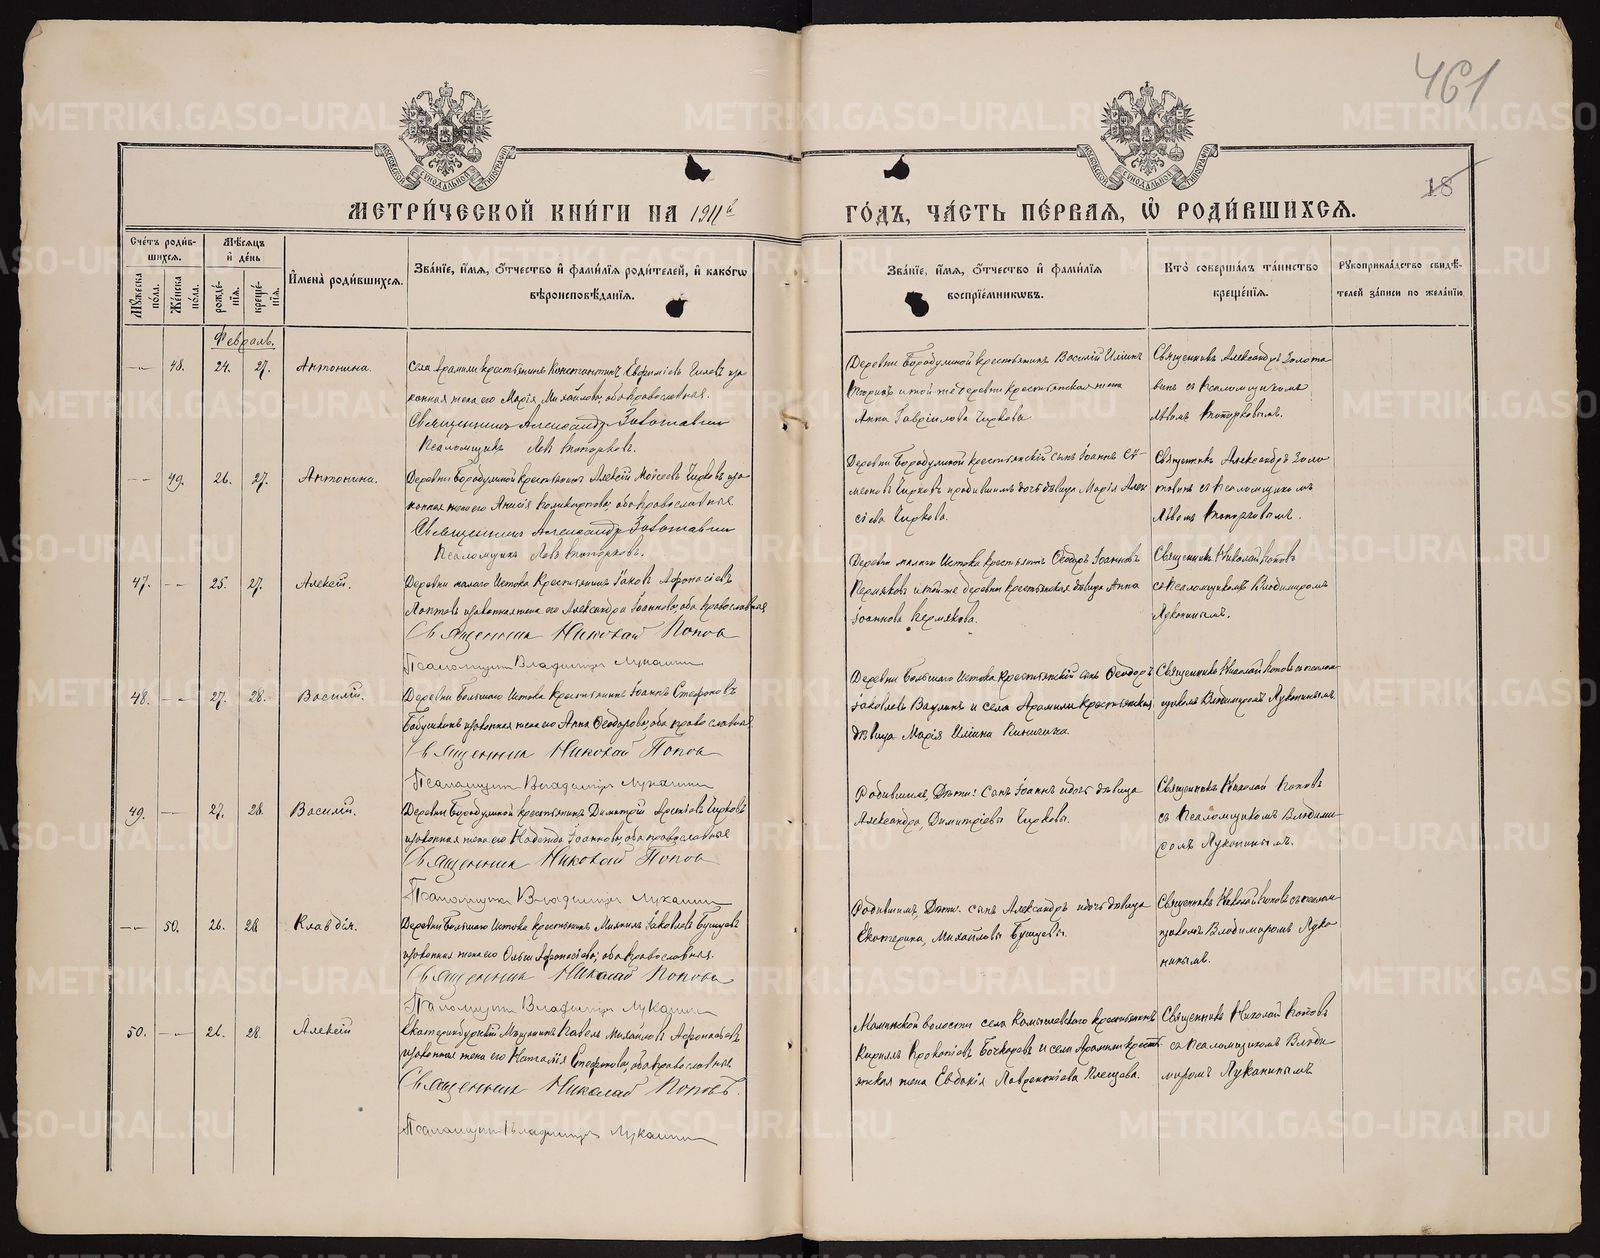 461
18
МЕТРИ́ЧЕСКОЙ КНИ́ГИ НА 1911й
ГО́ДЪ, ЧА́СТЬ ПЕ́РВАЯ, Ѡ҆ РОДИ́ВШИХСЯ.
Сче́тъ роди́в-
шихся.
Му́жеска по́ла.
Же́нска по́ла.
Мѣ́сяцъ и҆ де́нь
рожде́-
нїя.
креще́-
нїя.
И҆мена̀ роди́вшихся.
Зва́нїе, и҆́мя, ѻ҆́тчество и҆ фами́лїя роди́телей, и҆ како́гѡ
вѣроисповѣ́данїя.
Зва́нїе, и҆́мя, ѻ҆́тчество и҆ фами́лїя
воспрїе́мникѡвъ.
Кто̀ соверша́лъ та́инство
креще́нїя.
Рꙋкоприкла́дство свидѣ́-
телей за́писи по жела́нїю.
Февраль.
48. 24. 27. Антонина.
Села Арамили крестьянинъ Константинъ Евфиміевъ за-
конная жена его Марія Михайлова, оба православные.
Священникъ Александръ Золотавинъ
Псаломщикъ Левъ Вторковъ.
Деревни Бородулиной крестьянинъ Василій Иліинъ
и той же деревни крестьянская жена
Анна Гавріилова Чиркова
Священникъ Александръ Золота
винъ съ псаломщикомъ
Львомъ
49. 26. 27. Антонина.
Деревни Бородулиной крестьянинъ Алексій Моѵсеевъ Чирковъ за-
конная жена его Анисія Поликарпова, оба православные
Священникъ Александръ Золотавинъ
Псаломщикъ Левъ
Деревни Бородулиной крестьянскій сынъ Іоаннъ Сѵ-
меоновъ Чирковъ и родившимъ дочь дѣвица Марія Алек
сіева Чиркова.
Священникъ Александръ Золо
тавинъ съ псаломщикомъ
Львомъ
47. 25. 27. Алексій.
Деревни малаго Истока крестьянинъ Іаковъ Афонасіевъ
Лаптевъ и законная жена его Александра Іоаннова, оба православные
Священникъ Николай Поповъ
Псаломщикъ Владимиръ Луканинъ
Деревни малаго Истока крестьянинъ Ѳеодоръ Іоанновъ
Пермяковъ и той-же деревни крестьянская дѣвица Анна
Іоаннова Пермякова.
Священникъ Николай Поповъ
съ псаломщикомъ Владимиромъ
Луканинымъ.
48. 27. 28. Василій.
Деревни Большаго Истока крестьянинъ Іоаннъ Стефановъ
Бабушкинъ и законная жена его Анна Ѳеодорова, оба православные
Священникъ Николай Поповъ
Псаломщикъ Владимиръ Луканинъ
Деревни Большаго Истока крестьянскій сынъ Ѳеодоръ
Іаковлевъ Ваулинъ и села Арамили крестьянская
дѣвица Марія Иліина
Священникъ Николай Поповъ съ псалом
щикомъ Владимиромъ Луканинымъ
49. 27. 28. Василій.
Деревни Бородулиной крестьянинъ Димитрій Арсеніевъ Чирковъ
и законная жена его Надежда Іоаннова, оба православные
Священникъ Николай Поповъ
Псаломщикъ Владимиръ Луканинъ
Родившимъ, Дѣти: сынъ Іоаннъ и дочь дѣвица
Александра, Димитріевы Чирковы.
Священникъ Николай Поповъ
съ псаломщикомъ Владими-
ромъ Луканинымъ.
50. 26. 28. Клавдія.
Деревни Большаго Истока крестьянинъ Михаилъ Іаковлевъ Бушуевъ
и законная жена его Ольга Афонасіева, оба православные.
Священникъ Николай Поповъ
Псаломщикъ Владимиръ Луканинъ
Родившимъ, Дѣти: сынъ Александръ и дочь дѣвица
Екатерина, Михайловы Бушуевы.
Священникъ Николай Поповъ съ псалом
щикомъ Владимиромъ Лука
нинымъ.
50. 26. 28. Алексій
Екатеринбургскій мѣщанинъ Павелъ Михайловъ Афонасьевъ
и законная жена его Наталія Стефанова, оба православные
Священникъ Николай Поповъ.
Псаломщикъ Владимиръ Луканинъ
волости села крестьянинъ
Кириллъ Прокопіевъ Бочкаревъ и села Арамили кресть-
янская жена Евдокія Лаврентіева Плещева.
Священникъ Николай Поповъ
съ псаломщикомъ Влади
миромъ Луканинымъ